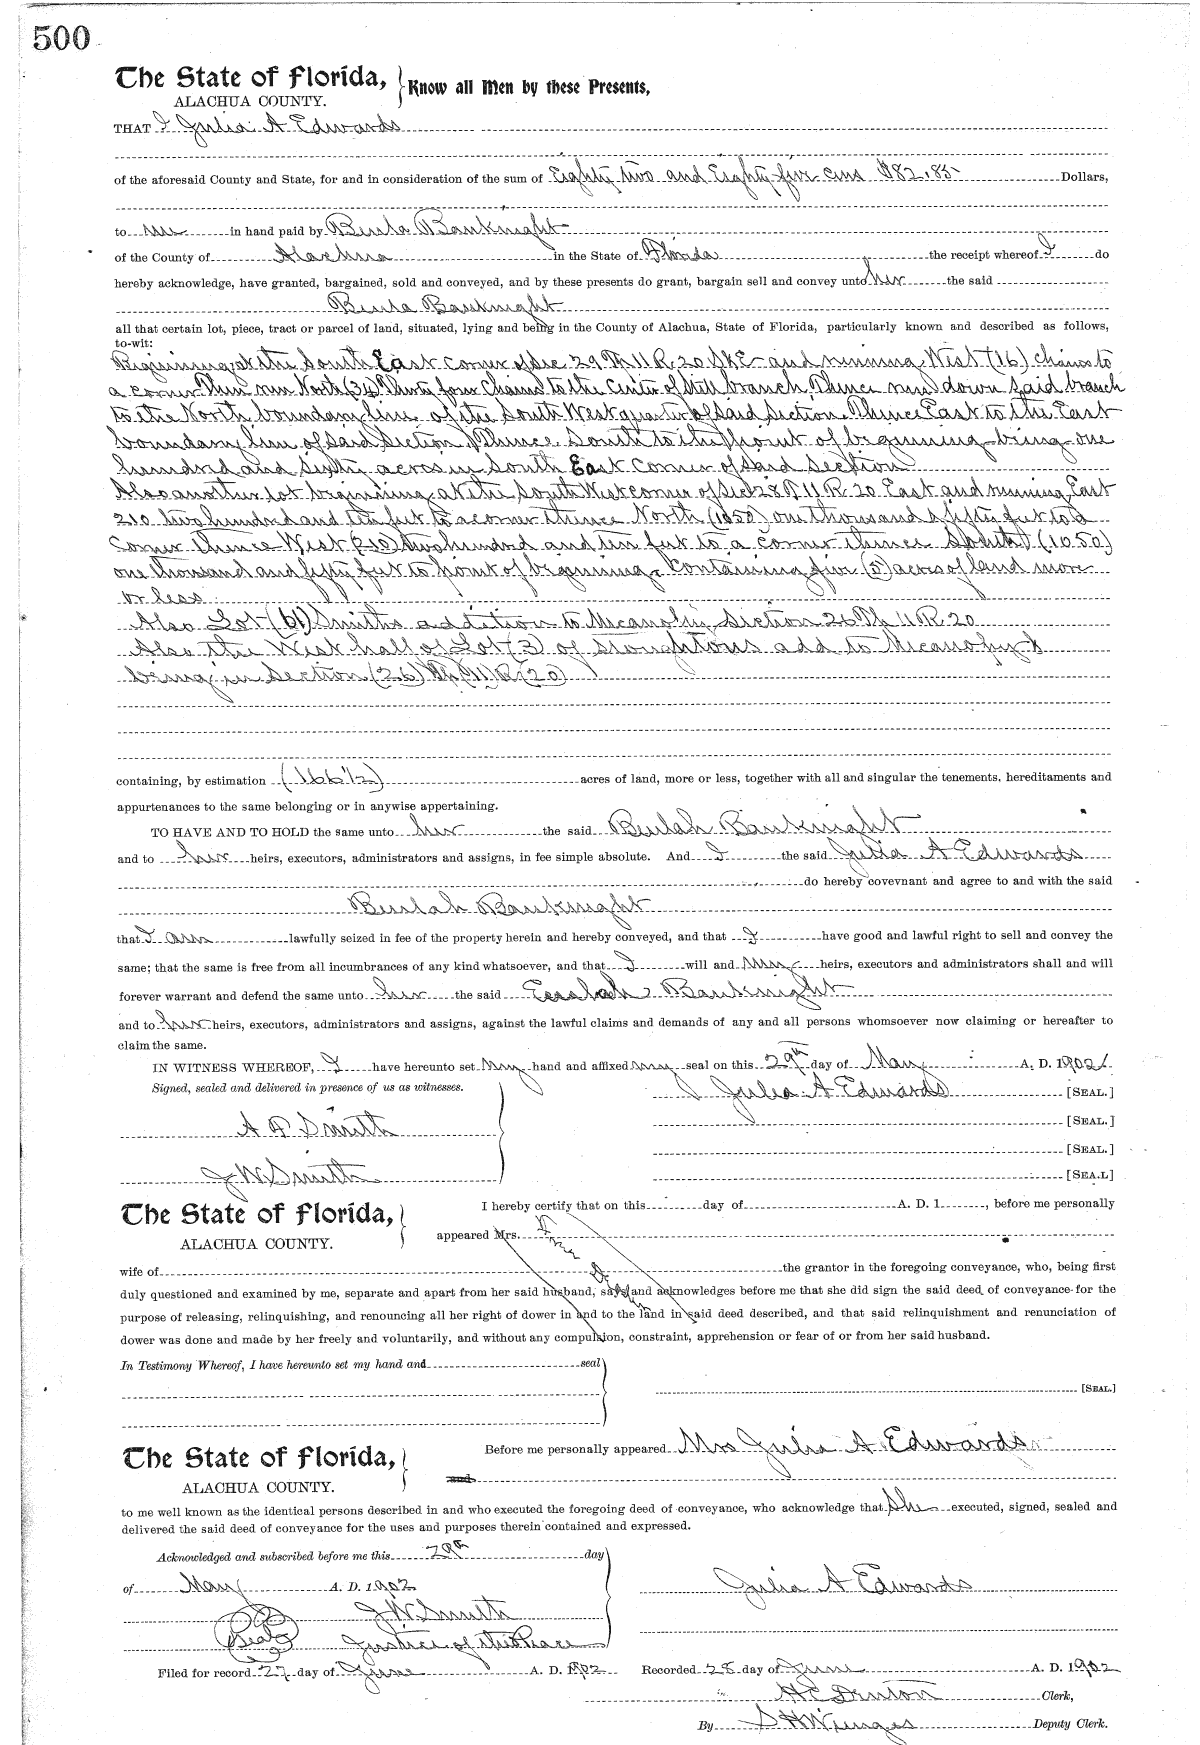 500
The State of Florida, Know all Men by these Presents,
ALACHUA COUNTY.
THAT I Julia A Edwards
of the aforesaid County and State, for and in consideration of the sum of Eighty two and Eighty five cens $82.85 Dollars,
to me in hand paid by Beula Bauknight
of the County of Alachua in the State of Florida the receipt whereof I do
hereby acknowledge, have granted, bargained, sold and conveyed, and by these presents do grant, bargain sell and convey unto her the said
Beula Bauknight
all that certain lot, piece, tract or parcel of land, situated, lying and being in the County of Alachua, State of Florida, particularly known and described as follows,
to-wit:
Beginning at the South East corner of Sec 29 Tp 11 R. 20 S&E and running West (16) chains to
a corner Then run North (34) Thirty four Chains to the Center of Mill branch, Thence run down said branch
to the North boundary line of the South West quarter of Said Section Thence East to the East
boundary line of said Section Thence South to the point of beginning being one
hundred and sixty acres in South East Corner of Said Section
Also another lot beginning at the South West corner of Sec 28 T 11 R. 20 East and running East
210 two hundred and ten feet to a corner thence North (1050) one thousand & fifty feet to a
corner thence West (210) two hundred and ten feet to a corner thence South (1050)
one thousand and fifty feet to point of beginning, Containing five (5) acres of land more
or less
Also Lot (61) Smiths addition to Micanopy Section 26 Tp 11 R 20
Also the West half of Lot (3) of Stoughtons add to Micanopy
being in Section (26) Tp (11) R (20)
containing, by estimation (166½) acres of land, more or less, together with all and singular the tenements, hereditaments and
appurtenances to the same belonging or in anywise appertaining.
TO HAVE AND TO HOLD the same unto her the said Beulah Bauknight
and to her heirs, executors, administrators and assigns, in fee simple absolute. And I the said Julia A Edwards
do hereby covevnant and agree to and with the said
Beulah Bauknight
that I am lawfully seized in fee of the property herein and hereby conveyed, and that I have good and lawful right to sell and convey the
same; that the same is free from all incumbrances of any kind whatsoever, and that I will and my heirs, executors and administrators shall and will
forever warrant and defend the same unto her the said Bauknight
and to her heirs, executors, administrators and assigns, against the lawful claims and demands of any and all persons whomsoever now claiming or hereafter to
claim the same.
IN WITNESS WHEREOF, I have hereunto set my hand and affixed my seal on this 29th day of May A. D. 1902
Signed, sealed and delivered in presence of us as witnesses.
Julia A Edwards [SEAL.]
[SEAL.]
A P Smith
[SEAL.]
J W Smith [SEA.L]
The State of Florida, I hereby certify that on this day of A. D. 1 , before me personally
ALACHUA COUNTY. appeared Mrs.
wife of the grantor in the foregoing conveyance, who, being first
duly questioned and examined by me, separate and apart from her said husband, says and acknowledges before me that she did sign the said deed of conveyance for the
purpose of releasing, relinquishing, and renouncing all her right of dower in and to the land in said deed described, and that said relinquishment and renunciation of
dower was done and made by her freely and voluntarily, and without any compulsion, constraint, apprehension or fear of or from her said husband.
In Testimony Whereof, I have hereunto set my hand and seal
[SEAL.]
The State of Florida, Before me personally appeared Mrs Julia A Edwards
ALACHUA COUNTY. and
to me well known as the identical persons described in and who executed the foregoing deed of conveyance, who acknowledge that she executed, signed, sealed and
delivered the said deed of conveyance for the uses and purposes therein contained and expressed.
Acknowledged and subscribed before me this 29th day
of May A. D. 1902 Julia A Edwards
J W Smith
Seal Justice of the Peace
Filed for record 27 day of June A. D. 1902 Recorded 28 day of June A. D. 1902
H C Denton Clerk,
By S H Wienges Deputy Clerk.